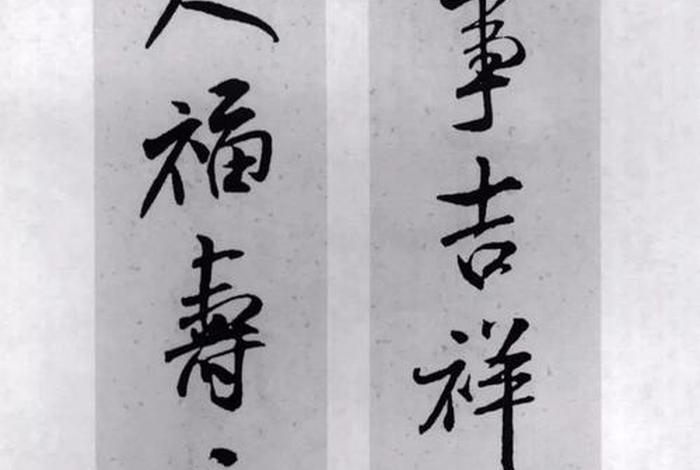 事吉祥
人福壽